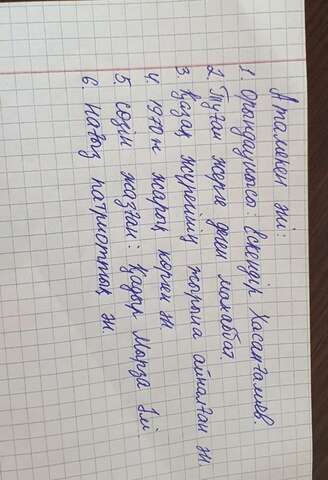 Аталекен әні:
1. Орындаушысы: Ескендір Хасанғалиев.
2. Туған жерге деген махаббат.
3. Қазақ жүрегінің жырына айналған ән.
4. 1970 ж жарық көрген ән
5. Сөзін жазған: Қадыр Мырза Әлі.
6. Нағыз патриоттық ән.